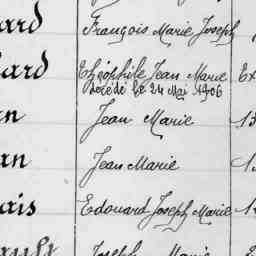 ard François Marie Joseph
ard Théophile Jean Marie Ex
Décédé le 24 Mai 1906
n Jean Marie 13
an Jean Marie 1
ais Edouard Joseph Marie 1
ault Joseph Marie